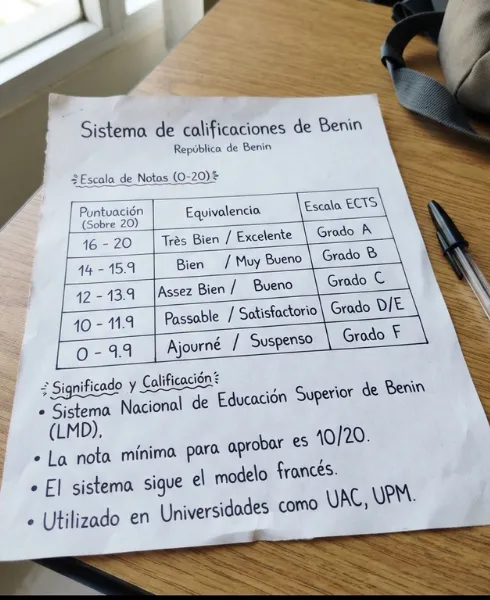 Sistema de calificaciones de Benin
República de Benin
Escala de Notas (0-20)
Puntuación (Sobre 20) Equivalencia Escala ECTS
16 - 20 Très Bien / Excelente Grado A
14 - 15.9 Bien / Muy Bueno Grado B
12 - 13.9 Assez Bien / Bueno Grado C
10 - 11.9 Passable / Satisfactorio Grado D/E
0 - 9.9 Ajourné / Suspenso Grado F
Significado y Calificación:
• Sistema Nacional de Educación Superior de Benin
(LMD),
• La nota mínima para aprobar es 10/20.
• El sistema sigue el modelo francés.
• Utilizado en Universidades como UAC, UPM.